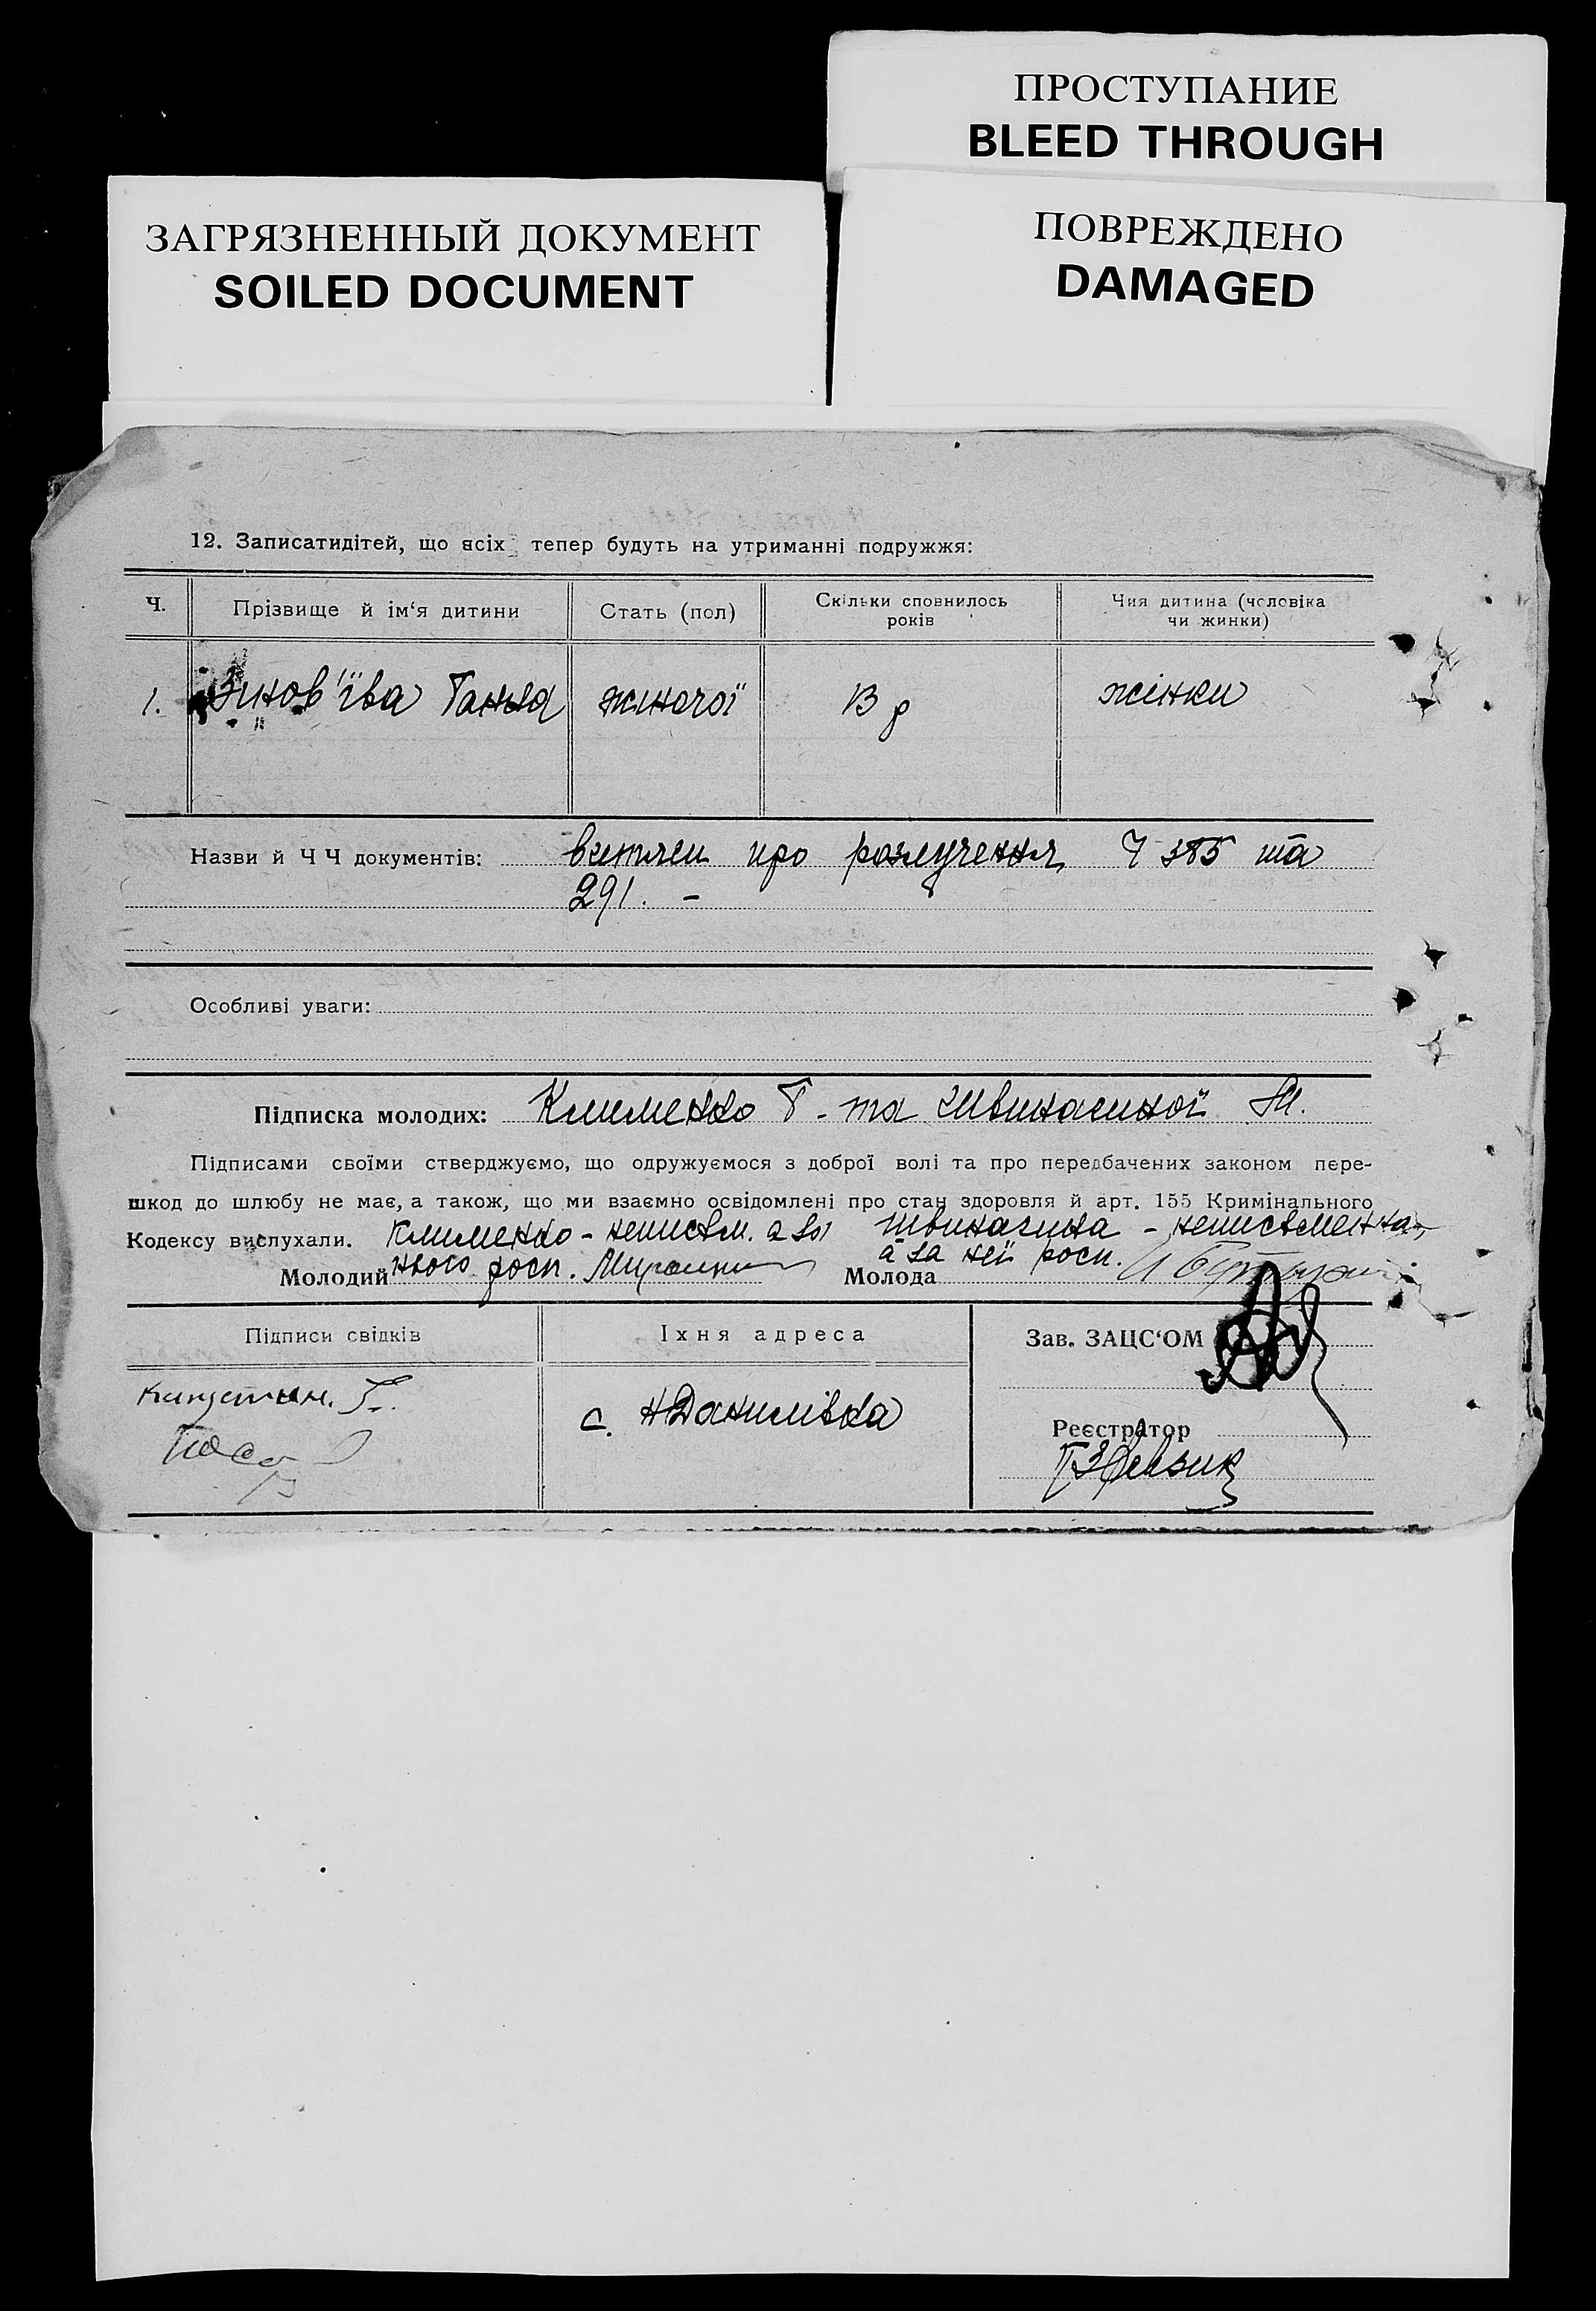 ПРОСТУПАНИЕ
BLEED THROUGH
ЗАГРЯЗНЕННЫЙ ДОКУМЕНТ
SOILED DOCUMENT
ПОВРЕЖДЕНО
DAMAGED
12. Записатидітей, що всіх тепер будуть на утриманні подружжя:
Ч. Прізвище й ім‘я дитини Стать (пол) Скільки сповнилось років Чия дитина (чоловіка чи жинки)
1. Зинов'їва Ганна жіночої 13 р жінки
Назви й Ч Ч документів: витяги про розлучення Ч 385 та
291. -
Особливі уваги:
Підписка молодих: Клименко Г. та М.
Підписами своїми стверджуємо, що одружуємося з доброї волі та про передбачених законом пере-
шкод до шлюбу не має, а також, що ми взаємно освідомлені про стан здоровля й арт. 155 Кримінального
Кодексу вислухали. Клименко - неписьм. а за - неписьменна,
нього росп. а за неї росп.
Молодий Молода
Підписи свідків Їхня адреса Зав. ЗАЦС‘ОМ
с. Н Данилівка
Реєстратор